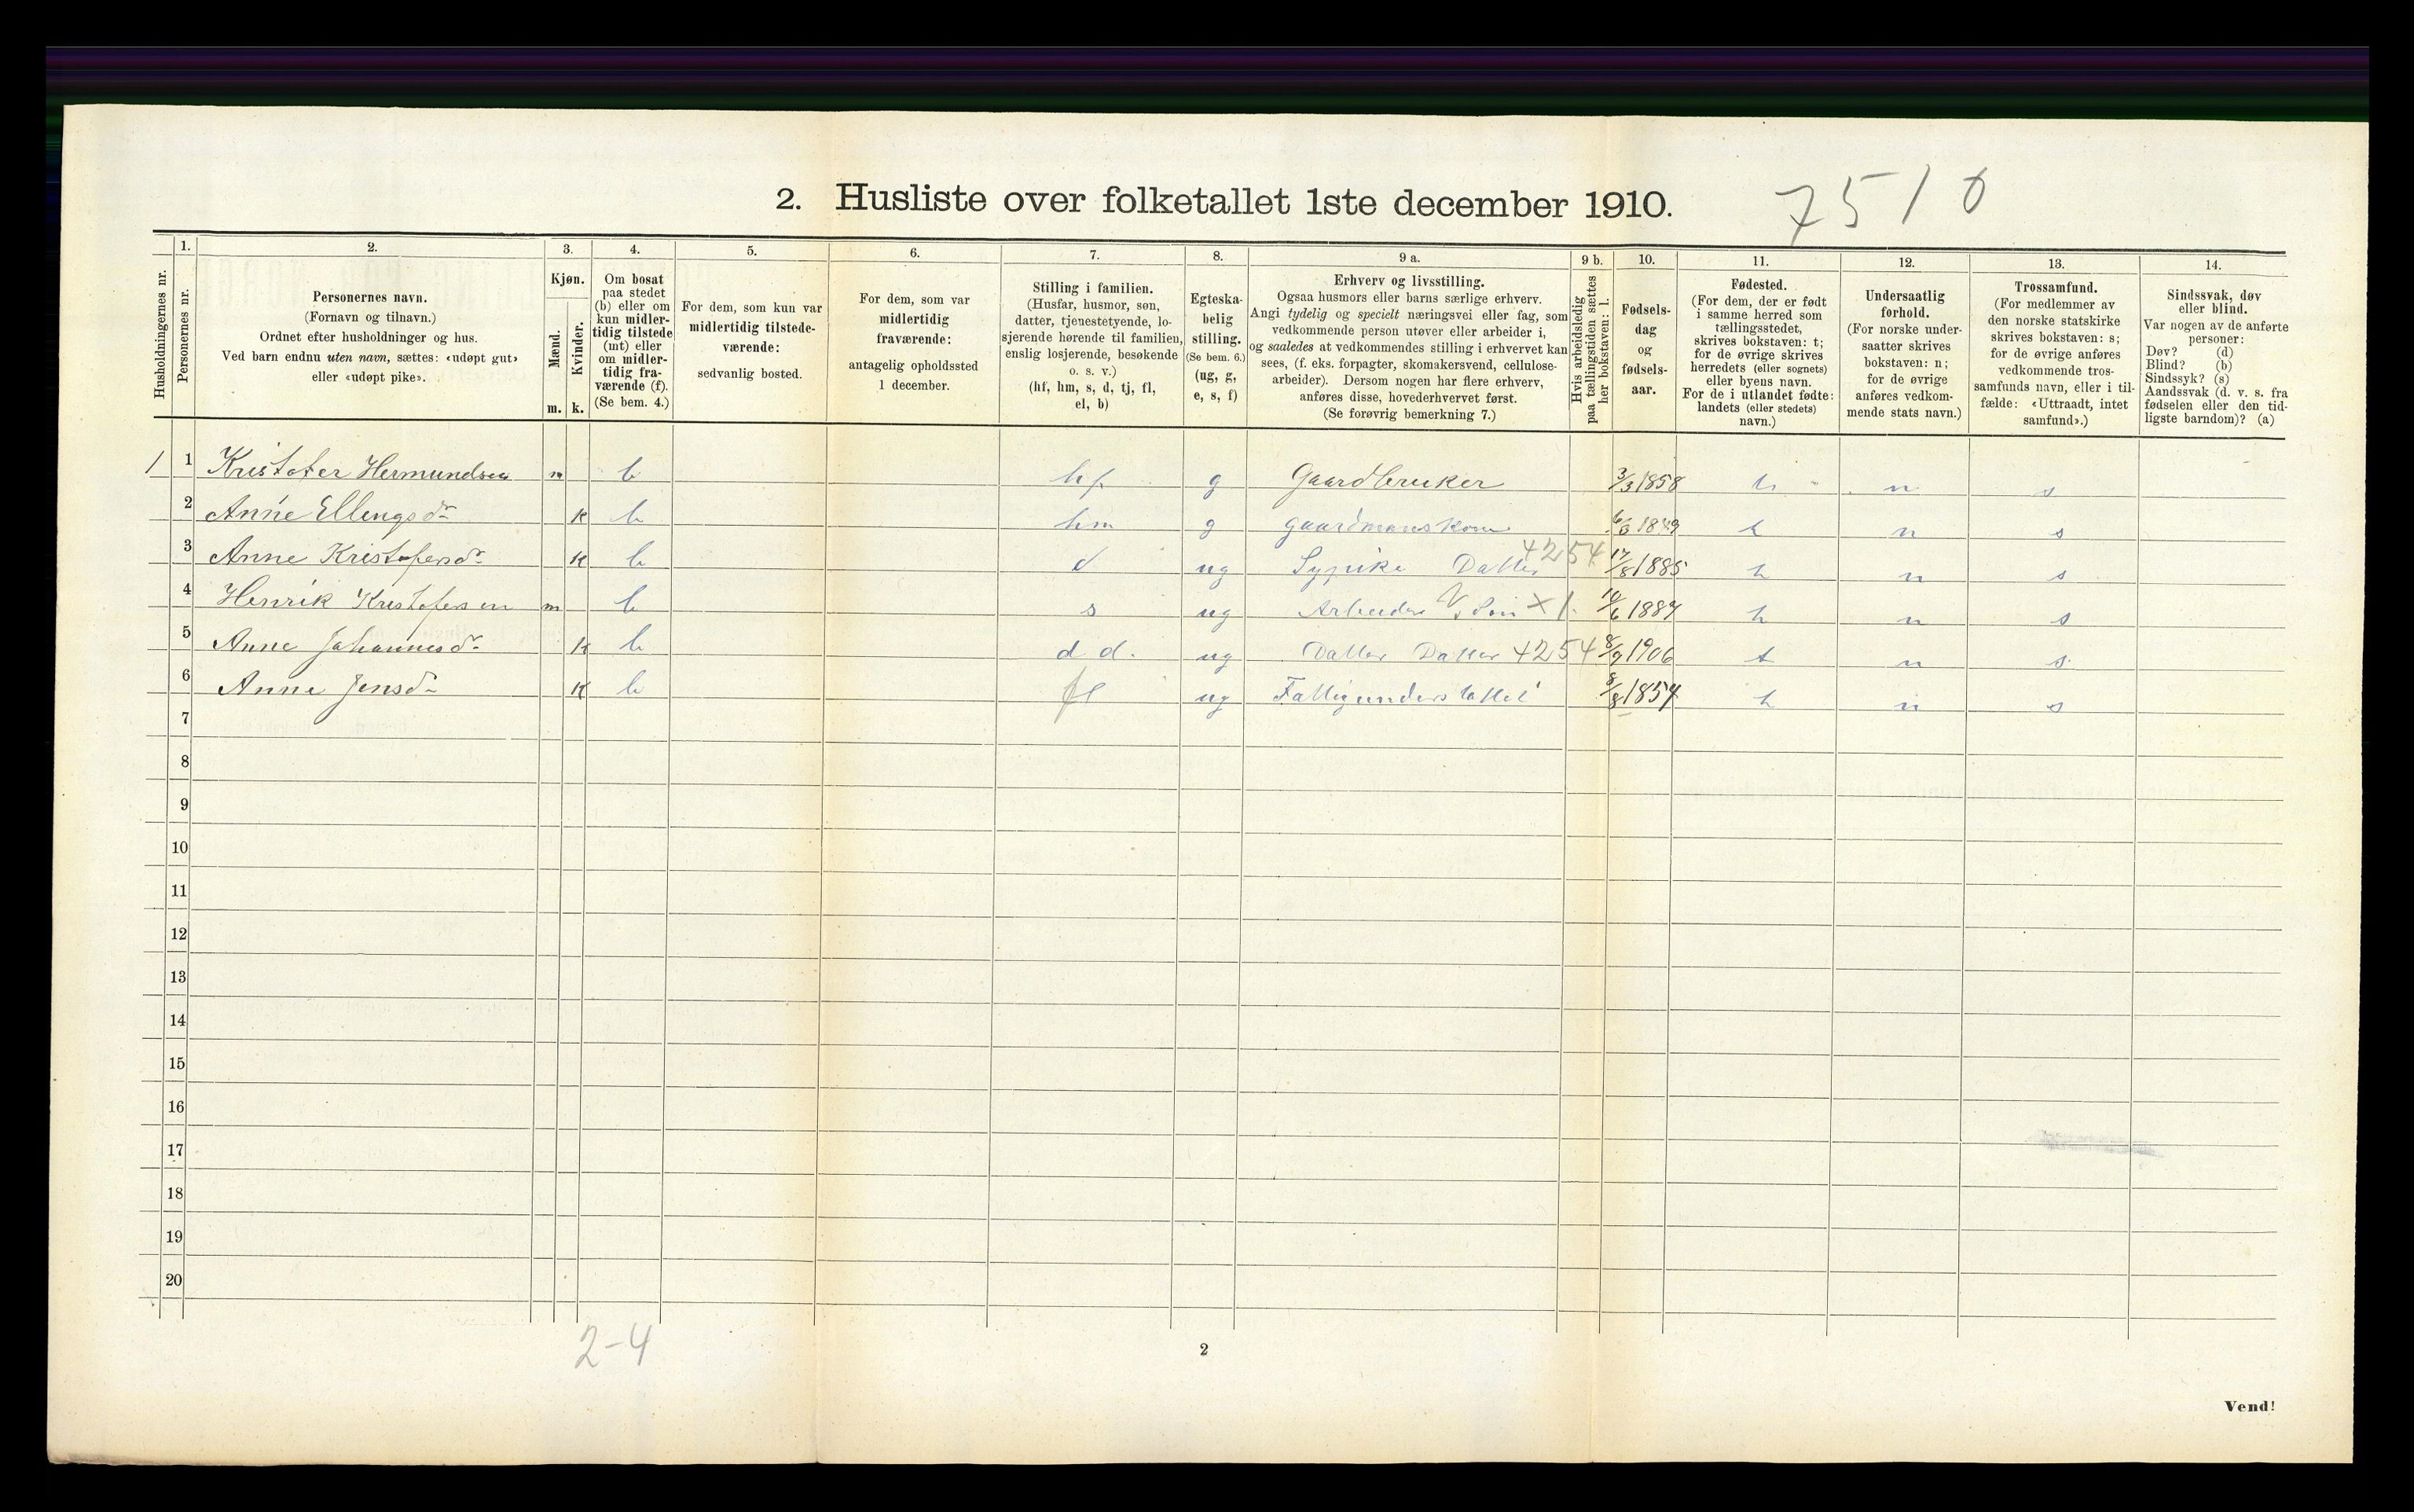 2. Husliste over folketallet 1ste december 1910.
7510
Husholdningernes nr.
1.
Personernes nr.
2.
Personernes navn.
(Fornavn og tilnavn.)
Ordnet efter husholdninger og hus.
Ved barn endnu uten navn, sættes: «udøpt gut»
eller «udøpt pike».
3.
Kjøn.
Mænd.
m.
Kvinder.
k.
4.
Om bosat
paa stedet
(b) eller om
kun midler-
tidig tilstede
(mt) eller
om midler-
tidig fra-
værende (f).
(Se bem. 4.)
5.
For dem, som kun var
midlertidig tilstede-
værende:
sedvanlig bosted.
6.
For dem, som var
midlertidig
fraværende:
antagelig opholdssted
1 december.
7.
Stilling i familien.
(Husfar, husmor, søn,
datter, tjenestetyende, lo-
sjerende hørende til familien,
enslig losjerende, besøkende
o. s. v.)
(hf, hm, s, d, tj, fl,
el, b)
8.
Egteska-
belig
stilling.
(Se bem. 6.)
(ug, g,
e, s, f)
9 a.
Erhverv og livsstilling.
Ogsaa husmors eller barns særlige erhverv.
Angi tydelig og specielt næringsvei eller fag, som
vedkommende person utøver eller arbeider i,
og saaledes at vedkommendes stilling i erhvervet kan
sees, (f. eks. forpagter, skomakersvend, cellulose-
arbeider). Dersom nogen har flere erhverv,
anføres disse, hovederhvervet først.
(Se forøvrig bemerkning 7.)
9 b.
Hvis arbeidsledig
paa tællingstiden sættes
her bokstaven: l.
10.
Fødsels-
dag
og
fødsels-
aar.
11.
Fødested.
(For dem, der er født
i samme herred som
tællingsstedet,
skrives bokstaven: t;
for de øvrige skrives
herredets (eller sognets)
eller byens navn.
For de i utlandet fødte:
landets (eller stedets)
navn.)
12.
Undersaatlig
forhold.
(For norske under-
saatter skrives
bokstaven: n;
for de øvrige
anføres vedkom-
mende stats navn.)
13.
Trossamfund.
(For medlemmer av
den norske statskirke
skrives bokstaven: s;
for de øvrige anføres
vedkommende tros-
samfunds navn, eller i til-
fælde: «Uttraadt, intet
samfund».)
14.
Sindssvak, døv
eller blind.
Var nogen av de anførte
personer:
Døv? (d)
Blind? (b)
Sindssyk? (s)
Aandssvak (d. v. s. fra
fødselen eller den tid-
ligste barndom)? (a)
1 1 Kristofer Hermundsen m b hf g Gaardbruker 3/3 1858 t n s
2 Anne Ellingsdr k b hm g gaardmanskone 1849 t n s
3 Anne Kristofersdr k b d ug Sypike Datter 4254 17/8 1885 t n s
4 Henrik Kristofersen m b s ug Arbeider Søn X 1. t n s
5 Anne Johannesdr k b d d. ug Datter Datter 4254 8/9 1906 t n s
6 Anne Jensdr k b fl ug Fattigunderstøttet 8/8 1854 t n s
7
8
9
10
11
12
13
14
15
16
17
18
19
20
2-4
2
Vend!